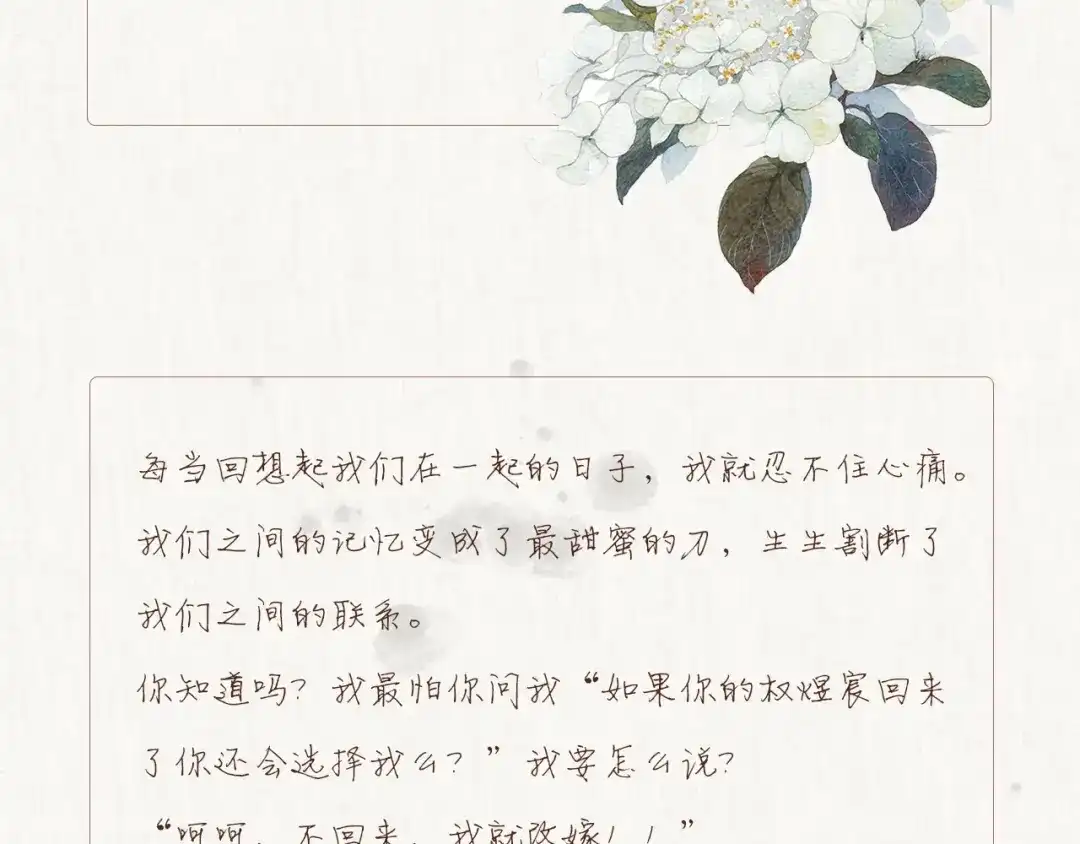 每当回想起我们在一起的日子，我就忍不住心痛。
我们之间的记忆变成了最甜蜜的刀，生生割断了
我们之间的联系。
你知道吗？我最怕你问我“如果你的权煜宸回来
了你还会选择我么？”我要怎么说？
“呵呵，不回来，我就改嫁！！”